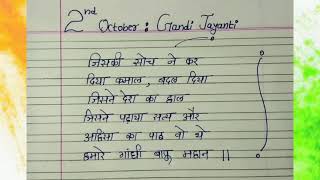 2nd October : Gandi Jayanti
जिसकी सोच ने कर
दिया कमाल, बदल दिया
जिसने देश का हाल
जिसने पढ़ाया सत्य और
अहिंसा का पाठ वो थे
हमारे गांधी बापू महान ||